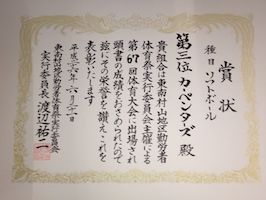 賞状
種目 ソフトボール
第三位 カーペンターズ 殿
貴組合は東南村山地区勤労者
体育祭実行委員会主催による
第67回体育大会に出場され
頭書の成績をおさめられたので
茲にその栄誉を讃えこれを
表彰いたします
平成二六年六月二一日
東南村山地区勤労者体育祭実行委員会
実行委員長 渡辺祐二